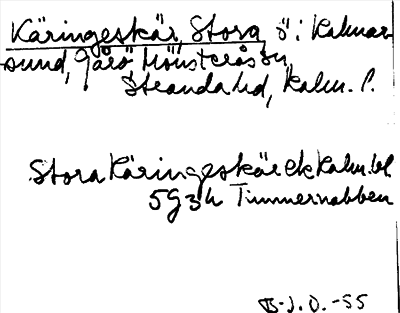 Käringeskär, Stora ö i Kalmar-
sund, Gårö, Mönsterås sn,
Stranda hd, Kalm. l.
Stora Käringeskär ek kalm. bl
5g3h Timmernabben
B-J.O.-55